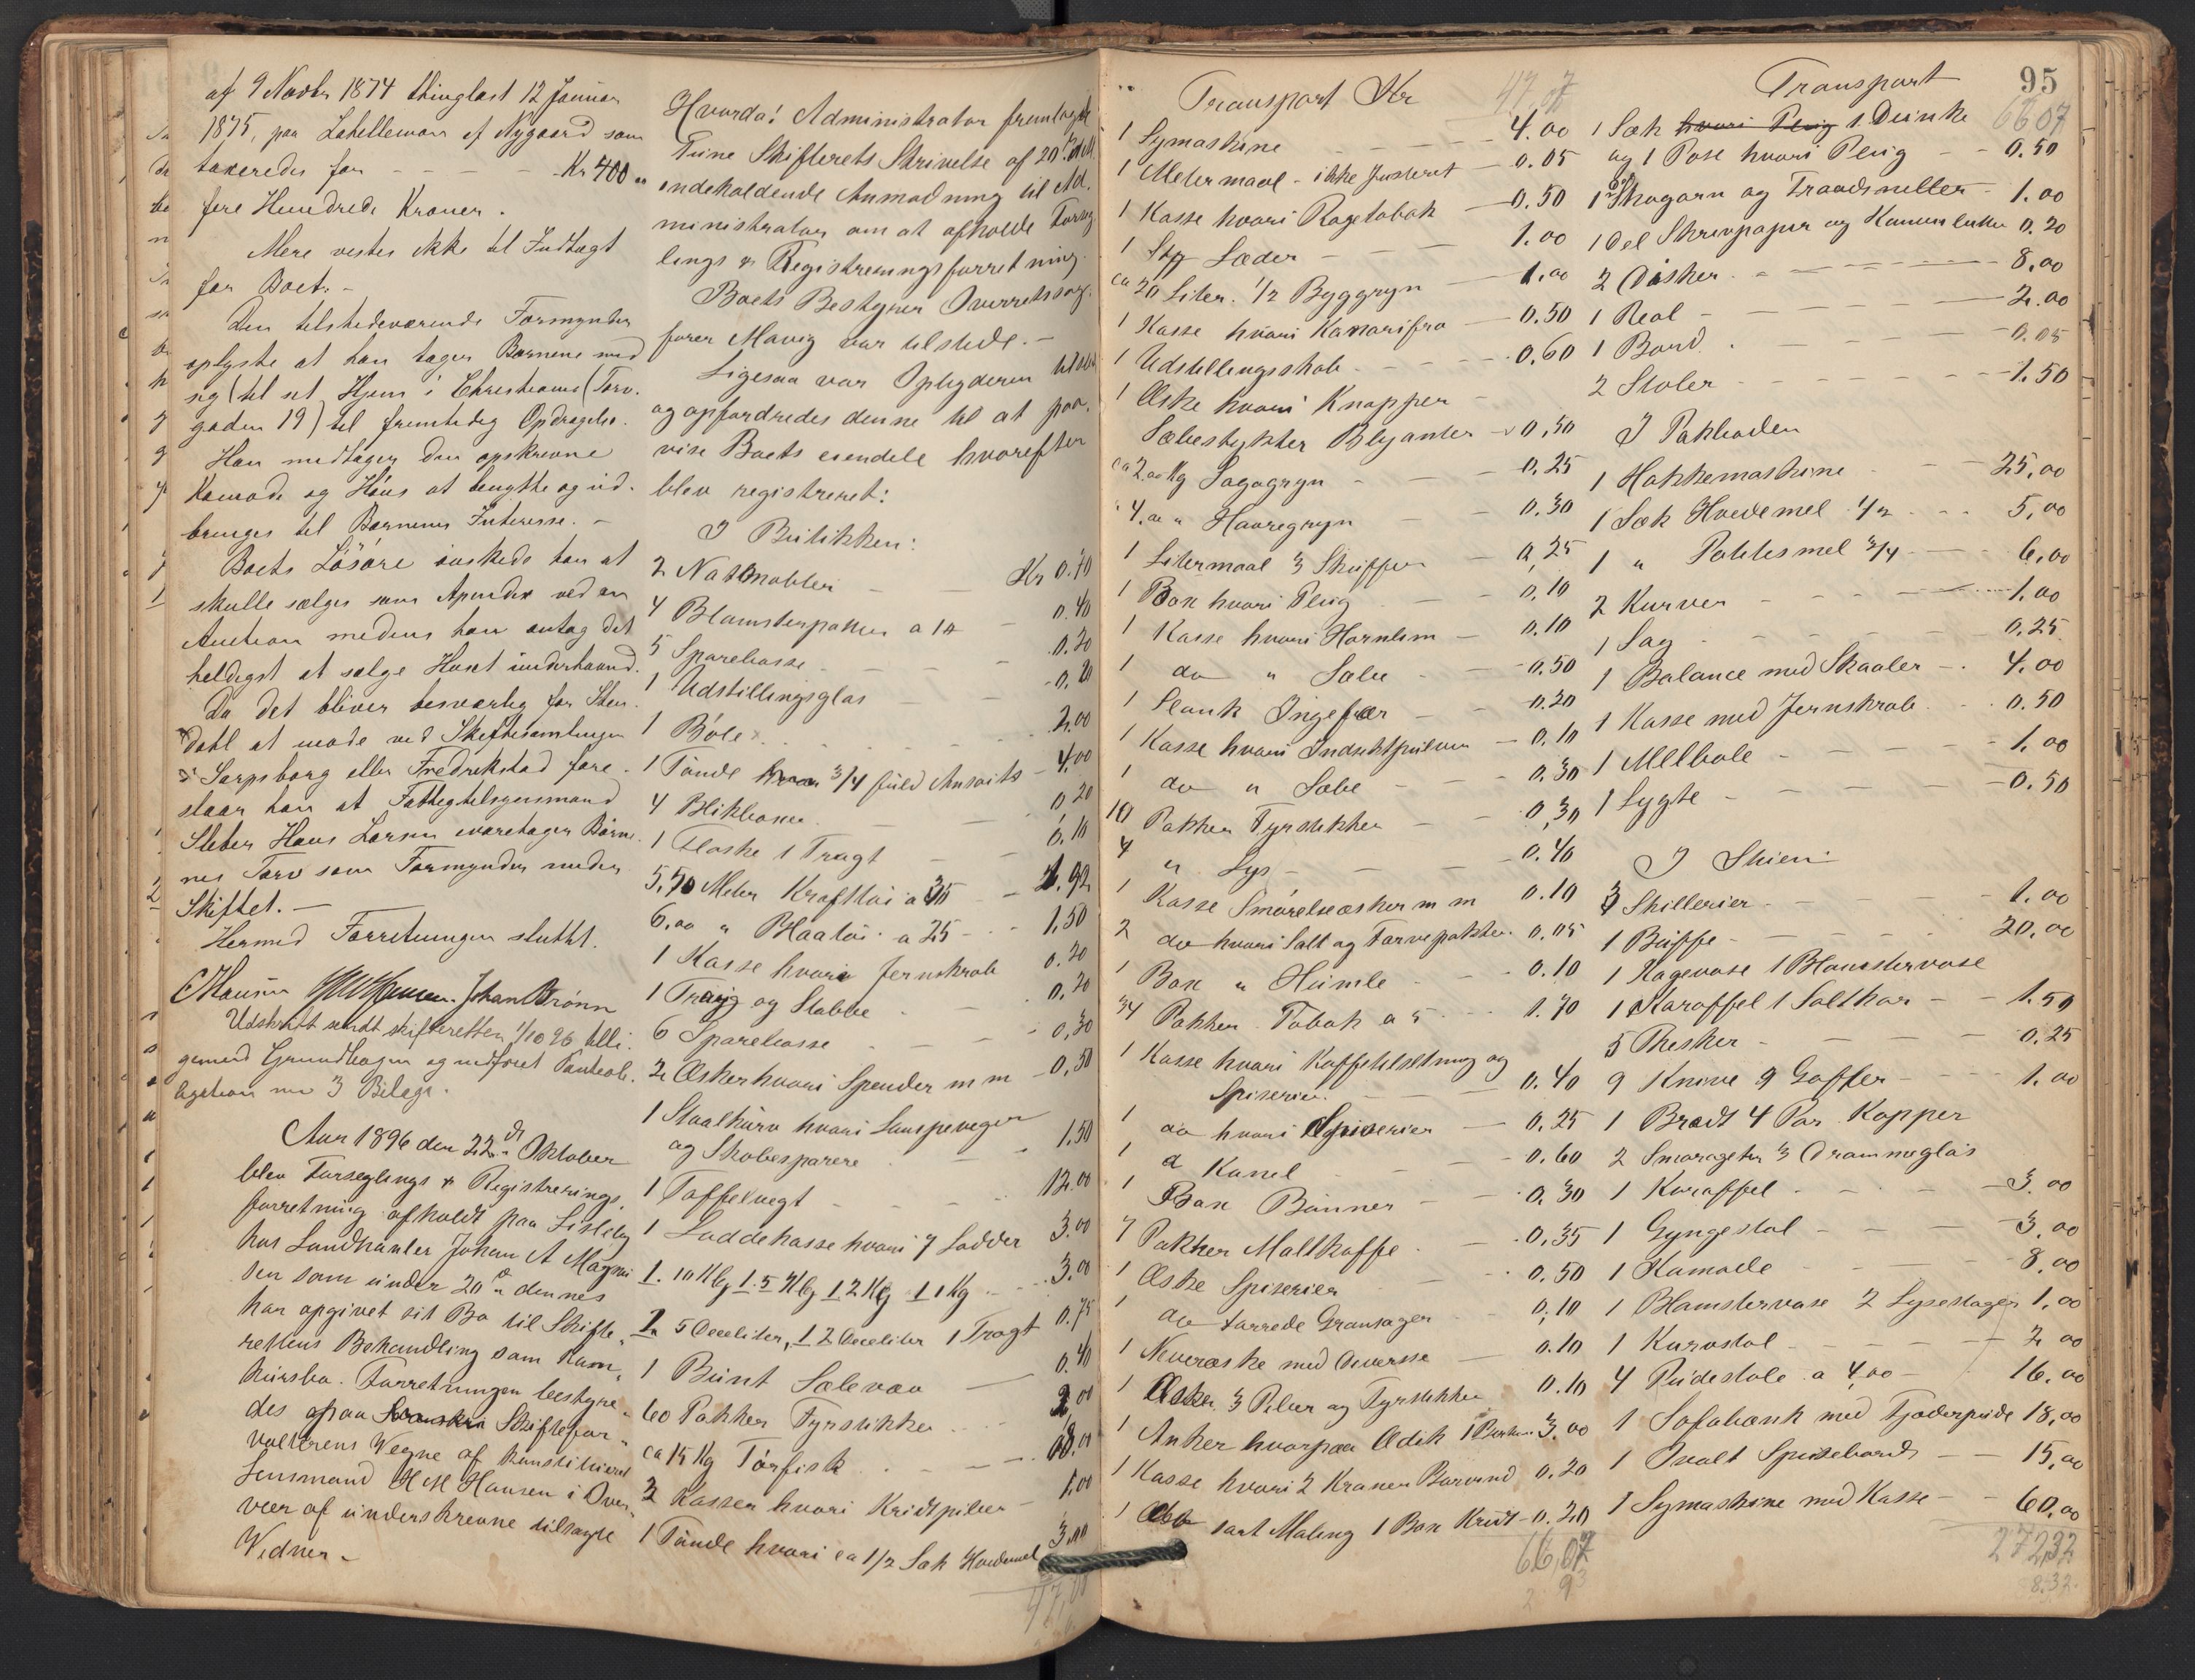 af 9 Novbr 1874 thinglæst 12 Januar
1875, paa Labellemoen af Nygaard som
taxeredes for - - - - Kr 400 "
fire Hundrede Kroner.
Mere vestes ikke til Indtægt
for Boet. -
Den tilstedeværende Formynder
oplyste at han tager Børnene med
sig (til sit Hjem i Christiania (Torv-
gaden 19) til fremtidig Opdragelse.
Han medtager den opskrevne
Komode og Haus at benytte og ud-
bruges til Børnenes Interesse. -
Boets Løsøre ønskede han at
skulle sælges som Apendix ved en
Auction medens han antog det
heldigst at sælge Huset underhaand.
Da det bliver besværlig for Sten-
dahl at møde ved Skiftesamlinger
i Sarpsborg eller Fredrikstad fore-
slaar han at Fattigtilsynsmand
Sleber Hans Larsen varetager Børne-
nes Tarv som Formynder under
Skiftet. -
Hermed Forretningen sluttet.
C Hansen Johan Brønn
Udskrift sendt skifteretten 1/10 96 tilli-
gemed Grundbogen og medfört Panteob-
ligation med 3 Bilage.
Aar 1896 den 22de Oktober
blev Forseglings & Registrerings-
forretning afholdt paa Lisleby
hos Landhanler Johan A Magnu
sen som under 20de dennes
har opgivet sit Bo til Skifte-
rettens Behandling som Kon-
kursbo. Forretningen bestyre-
des af paa Skiftefor-
valterens Vegne af konstitueret
Lensmand H M Hansen i Over-
vær af underskrevne tilsagte
Vidner -
Hvorda! Administrator fremlagde
Tune Skifterets Skrivelse af 20de ds M.
indeholdende Anmodning til Ad-
ministrator om at afholde Forseg
lings & Registreringsforretning.
Boets Bestyrer Overretssag-
fører Mavig var tilstede. -
Ligesaa var Opbyderen tilstede
og opfordredes denne til at paa-
vise Boets eiendele hvorefter
blev registreret:
I Butikken:
2 Natmobler - - Kr 0.70
4 Blomsterpotter a 10 - 0.40
5 Sparebøsse - - - - 0.20
1 Udstillingsglas - - 0.20
1 Bøle - - - - - 2.00
1 Tønde 3/4 fuld Ansoits - 4.00
4 Blikboxer - - - 0.20
1 Flaske 1 Tragt - - 0.10
5,70 Meter Krafttøi a 35 - 1.92
6,00 " Blaatøi a 25 - - 1,50
1 Kasse hvori Jernskrab 0.20
1 Traug og Stabbe - - 0,20
6 Sparebøsse - - - 0,30
2 Æsker hvori Spender m m - 0,50
1 Staalkurv hvori Lampeveger
og Skobesparere - - - 1,50
1 Taffelvegt - - - 12.00
1 Loddekasse hvori 7 Lodder 3.00
1. 10 Klg 1. 5 Klg 1 2 Klg 1 1 Kg - - 3.00
1. 5 Deceliter, 1 2 Deceliter 1 Tragt 0.75
1 Bunt Salevav - 0.40
60 Pakker Fyrstikker - - 2,00
ca 15 Kg Tørfisk - - - -
2 Kasser hvori Kridtpiber - 1,00
1 Tønde hvori ca 1/2 Sæk Hvedemel 3,00
47,07
Transport Kr 47 07
1 Symaskine - - - - - 4.00
1 Metermaal - ikke justeret - 0.05
1 Kasse hvori Røgetobak - 0.50
1 Stk Læder - - - 1.00
ca 20 Liter 1/2 Byggryn - 1.00
1 Kasse hvori Kanarifrø - 0.50
1 Udstillingsskab - - - 0.60
1 Æske hvori Knapper -
Sæbestykker Blyanter - 0,50
ca 2.00 Kg Sagogryn - - - 0.25
" 4.00 " Havregryn - - 0.30
1 Litermaal 3 Skuffer - 0,25
1 Box hvori Plug - - 0.10
1 Kasse hvori Hornlim - 0.10
1 do " Sæbe - - 0.50
1 Slank Ingefær - - 0.20
1 Kasse hvori Indsektpulver - 0,10
1 do " Sæbe - - - 0.30
10 Pakker Fyrstikker - - 0,30
4 " Lys - - - - 0.40
1 Kasse Smørelseæsker m m 0.10
2 do hvori Salt og Farvepakker 0.05
1 Box " Humle - - - 0.10
34 Pakker Tobak a 5 - - 1.70
1 Kasse hvori Kaffetilsetning og
Spiserier - - - - 0.40
1 do hvori Spiserier - 0,25
1 d Kanel - - - - 0.60
1 Box Bønner - - 0,30
7 Pakker Maltkaffe - - 0,35
1 Æske Spiserier - - 0.50
1 do tørrede Grønsager - 0,10
1 Neveræske med Diversse - 0.10
1 Æsker 3 Piber og Fyrstikker 0.10
1 Anker hvorpaa Edik 3.00
1 Kasse hvori 2 Kraner Borvind 0.20
1 sort Maling 1 Box Kridt - 0.20
66,07
Transport 95
66 07
1 Sæk hvori Plug 1 Dunke
og 1 Pose hvori Plug - - 0.50
1 Del Skogarn og Traadsneller - 1.00
1 Del Skrivpapir og 0.20
2 Disker - - - - - 8,00
1 Reol - - - - - 2.00
1 Bord - - - - - 0.05
2 Stoler - - - - - 1.50
I Pakboden
1 Hakkemaskine - - 25,00
1 Sæk Hvedemel 1/2 - - 5,00
1 " Potetesmel 3/4 - - 6,00
2 Kurver - - - - - 1.00
1 Sag - - - - - 0,25
1 Balance med Skaaler - - 4.00
1 Kasse med Jernskrab - - 0.50
1 Mellbøle - - - - 1.00
1 Lygte - - - - - 0.50
I Stuen
3 Skillerier - - - - 1.00
1 Büffe - - - - - 20,00
1 Kagevase 1 Blomstervase
1 Karaffel 1 Saltkar - - 1.50
5 Theskeer - - - - 0.25
9 Knive 9 Gafler - - - 1.00
1 Brødt 4 Par Kopper
2 3 Drammeglas
1 Karaffel - - - - 3.00
1 Gyngestol - - - 3,00
1 Komode - - - - 8,00
1 Blomstervase 2 Lysestager 1,00
1 Kurvstol - - - - 2 00
4 Pudestole a 4,00 - 16,00
1 Sofabænk med Fjæderpude 18,00
1 Ovalt Spisebord - - 15,00
1 Symaskine med Kasse - - 60,00
272,32
8.32